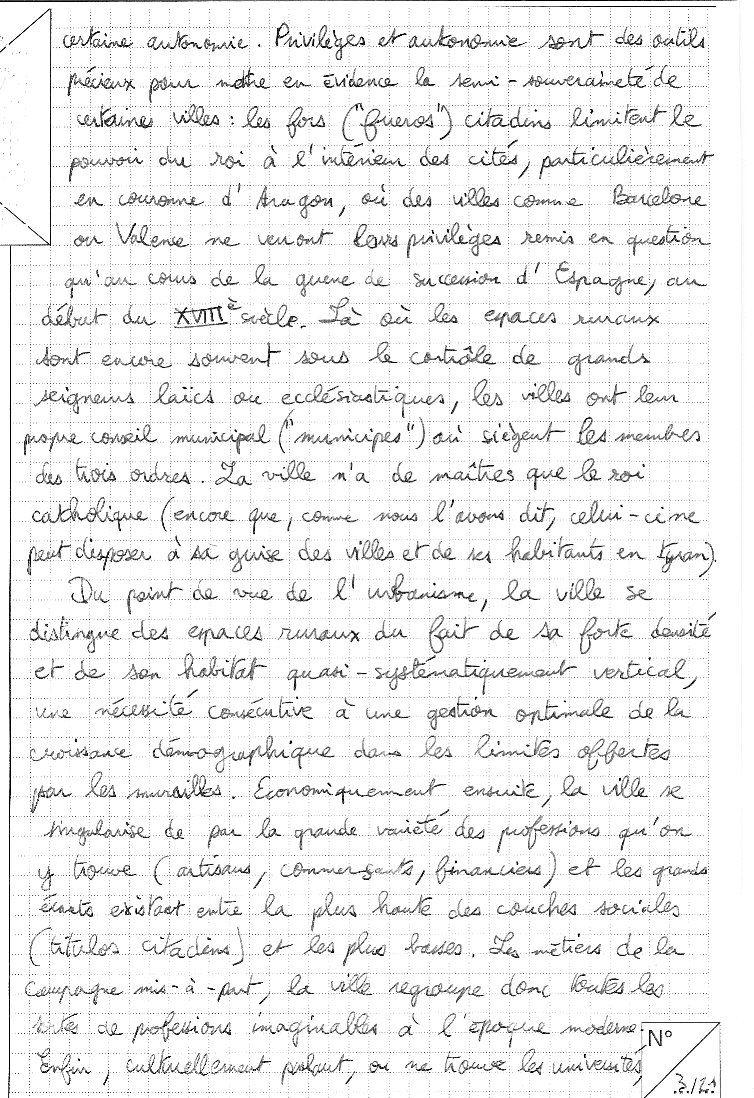 certaine autonomie. Privilèges et autonomie sont des outils
précieux pour mettre en évidence la semi-souveraineté de
certaines villes : les fors ("fueros") citadins limitent le
pouvoir du roi à l'intérieur des cités, particulièrement
en couronne d'Aragon, où des villes comme Barcelone
ou Valence ne verront leurs privilèges remis en question
qu'au cours de la guerre de succession d'Espagne, au
début du XVIIIè siècle. Là où les espaces ruraux
sont encore souvent sous le contrôle de grands
seigneurs laïcs ou ecclésiastiques, les villes ont leur
propre conseil municipal ("municipes") où siègent les membres
des trois ordres. La ville n'a de maîtres que le roi
catholique (encore que, comme nous l'avons dit, celui-ci ne
peut disposer à sa guise des villes et de ses habitants en tyran).
Du point de vue de l'urbanisme, la ville se
distingue des espaces ruraux du fait de sa forte densité
et de son habitat quasi-systématiquement vertical,
une nécessité consécutive à une gestion optimale de la
croissance démographique dans les limites offertes
par les murailles. Economiquement ensuite, la ville se
singularise de par la grande variété des professions qu'on
y trouve (artisans, commerçants, financiers) et les grands
écarts existant entre la plus haute des couches sociales
(títulos citadins) et les plus basses. Les métiers de la
campagne mis-à-part, la ville regroupe donc toutes les
sortes de professions imaginables à l'époque moderne.
Enfin, culturellement parlant, on ne trouve les universités,
N°
3/21